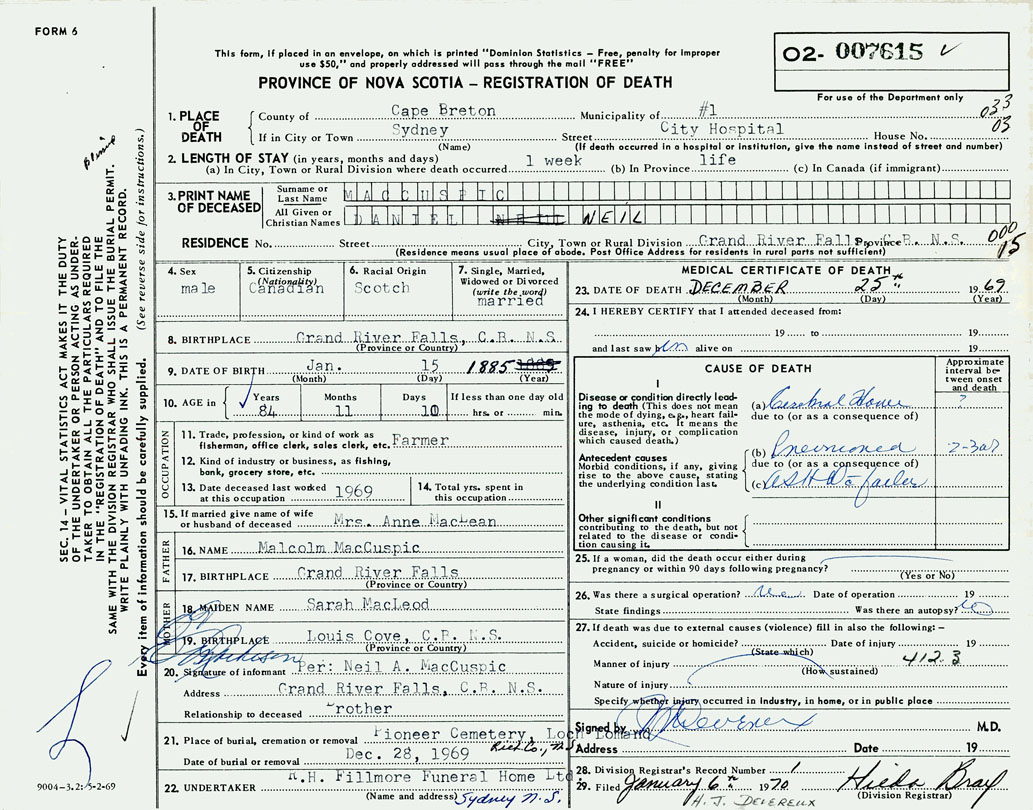 FORM 6
02- 007615
For use of the Department only
This form, if placed in an envelope, on which is printed "Dominion Statistics – Free, penalty for improper
use $50," and properly addressed will pass through the mail "FREE"
PROVINCE OF NOVA SCOTIA – REGISTRATION OF DEATH
1. PLACE OF DEATH
County of Cape Breton Municipality of #1 033
If in City or Town Sydney Street City Hospital House No. 03
(Name) (If death occurred in a hospital or institution, give the name instead of street and number)
2. LENGTH OF STAY (in years, months and days)
(a) In City, Town or Rural Division where death occurred 1 week (b) In Province life (c) In Canada (if immigrant)
3. PRINT NAME OF DECEASED
Surname or Last Name MACCUSPIC
All Given or Christian Names DANIEL NEIL
RESIDENCE No. Street City, Town or Rural Division Grand River Falls, Province C.B. N.S. 000 15
(Residence means usual place of abode. Post Office Address for residents in rural parts not sufficient)
4. Sex male
5. Citizenship (Nationality) Canadian
6. Racial Origin Scotch
7. Single, Married, Widowed or Divorced (write the word) married
8. BIRTHPLACE Grand River Falls, C.B. N.S.
(Province or Country)
9. DATE OF BIRTH Jan. 15 1885
(Month) (Day) (Year)
10. AGE in Years 84 Months 11 Days 10 If less than one day old hrs. or min.
OCCUPATION
11. Trade, profession, or kind of work as fisherman, office clerk, sales clerk, etc. Farmer
12. Kind of industry or business, as fishing, bank, grocery store, etc.
13. Date deceased last worked at this occupation 1969
14. Total yrs. spent in this occupation
15. If married give name of wife or husband of deceased Mrs. Anne MacLean
FATHER
16. NAME Malcolm MacCuspic
17. BIRTHPLACE Grand River Falls
(Province or Country)
MOTHER
18. MAIDEN NAME Sarah MacLeod
19. BIRTHPLACE Louis Cove, C.B. N.S.
(Province or Country)
20. Signature of informant Per: Neil A. MacCuspic
Address Grand River Falls, C.B. N.S.
Relationship to deceased rother
21. Place of burial, cremation or removal Pioneer Cemetery, Loch Lomand
Rich Co., N.S.
Date of burial or removal Dec. 28, 1969
22. UNDERTAKER R.H. Fillmore Funeral Home Ltd
(Name and address) Sydney N.S.
MEDICAL CERTIFICATE OF DEATH
23. DATE OF DEATH DECEMBER 25th 1969
(Month) (Day) (Year)
24. I HEREBY CERTIFY that I attended deceased from:
19 to 19
and last saw him alive on 19
CAUSE OF DEATH
Approximate interval between onset and death
I
Disease or condition directly leading to death (This does not mean the mode of dying, e.g., heart failure, asthenia, etc. It means the disease, injury, or complication which caused death.)
(a) Cerebral ?
due to (or as a consequence of)
Antecedent causes
Morbid conditions, if any, giving rise to the above cause, stating the underlying condition last.
(b)
due to (or as a consequence of)
(c) ASHD
II
Other significant conditions contributing to the death, but not related to the disease or condition causing it.
25. If a woman, did the death occur either during pregnancy or within 90 days following pregnancy?
(Yes or No)
26. Was there a surgical operation? Date of operation 19
State findings Was there an autopsy? No
27. If death was due to external causes (violence) fill in also the following:–
Accident, suicide or homicide? Date of injury 19
(State which) 412.3
Manner of injury
(How sustained)
Nature of injury
Specify whether injury occurred in industry, in home, or in public place
Signed by M.D.
Address Date 19
28. Division Registrar's Record Number 1
29. Filed January 6th 1970 Hilda Bray
(Division Registrar)
H. J. DEVEREUX
SEC. 14 – VITAL STATISTICS ACT MAKES IT THE DUTY
OF THE UNDERTAKER OR PERSON ACTING AS UNDER-
TAKER TO OBTAIN ALL THE PARTICULARS REQUIRED
IN THE "REGISTRATION OF DEATH" AND TO FILE THE
SAME WITH THE DIVISION REGISTRAR WHO SHALL ISSUE THE BURIAL PERMIT.
WRITE PLAINLY WITH UNFADING INK. THIS IS A PERMANENT RECORD.
Every item of information should be carefully supplied. (See reverse side for instructions.)
9004-3.2: 5-2-69